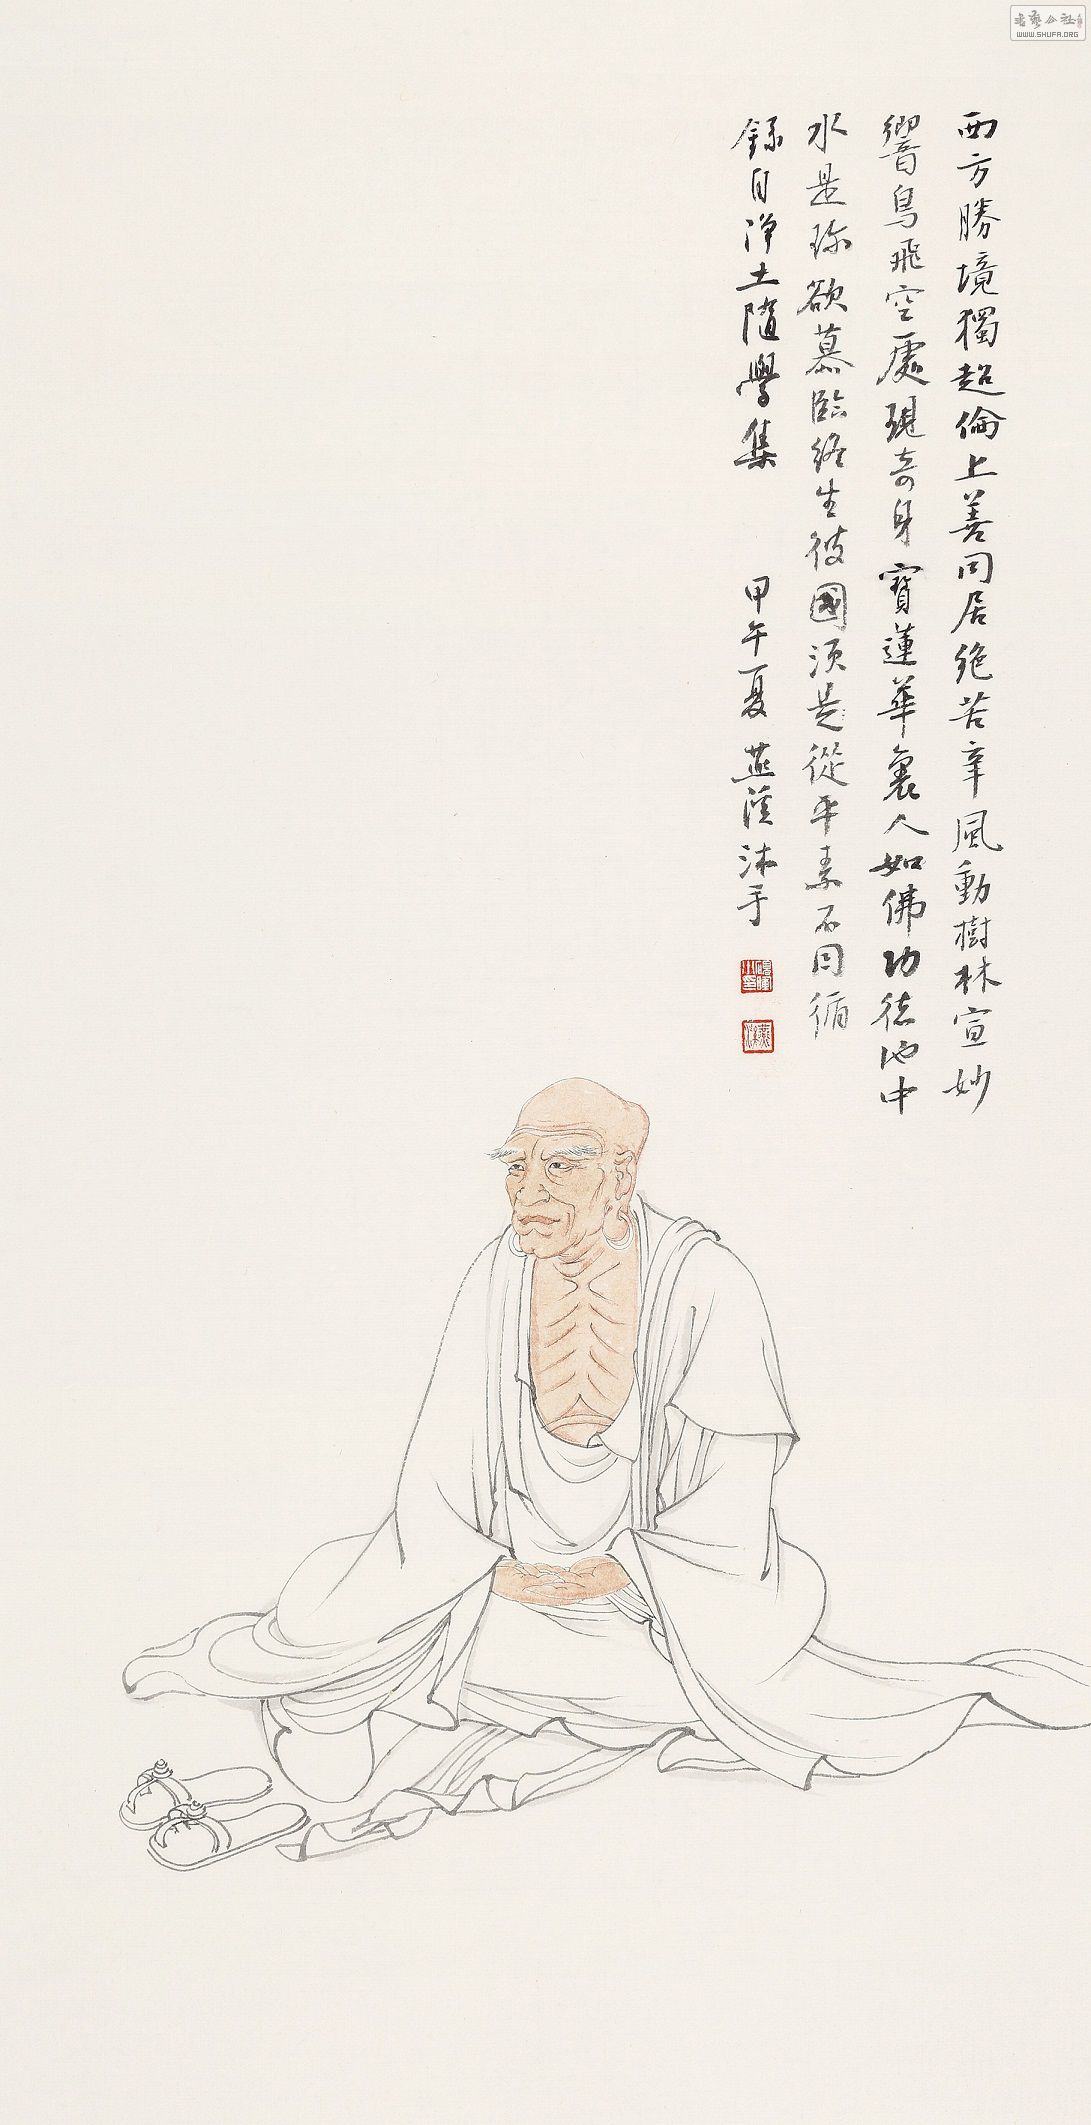 西方勝境獨超倫上善同居絶苦辛風動樹林宣妙
響鳥飛空處現奇身寶蓮華裏人如佛功德池中
水是珎欲慕臨終生彼國須是從平素不因循
錄自淨土隨學集 甲午夏 燕蔭沐手
WWW.SHUFA.ORG